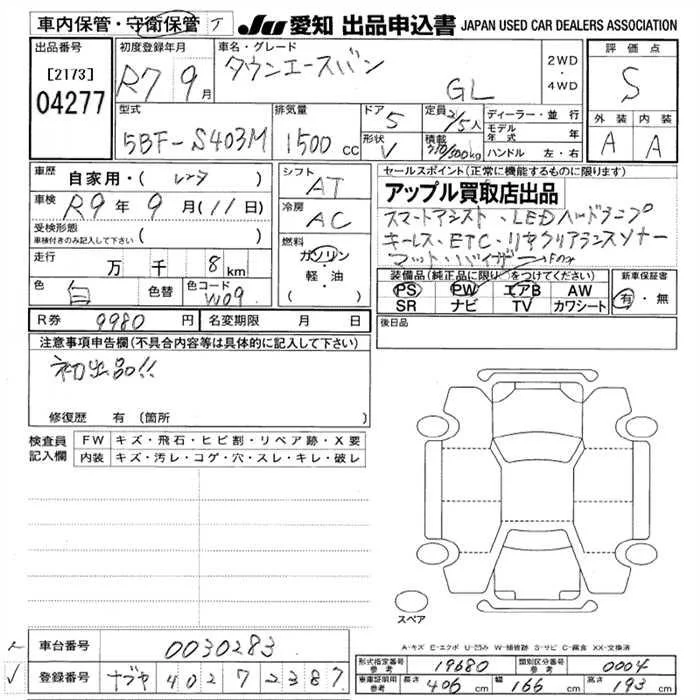 車内保管・守衛保管 JU 愛知 出品申込書 JAPAN USED CAR DEALERS ASSOCIATION
出品番号 初度登録年月 車名・グレード 評価点
[2173] R7 9月 タウンエースバン GL 2WD・4WD S
04277
型式 排気量 ドア 定員 ディーラー・並行 外装 内装
5BF-S403M 1500cc 5 2/5人 モデル年式 年 A A
形状 V 積載 kg ハンドル 左・右
車歴 自家用・( レンタ ) シフト AT セールスポイント(正常に機能するものに限ります)
車検 R9年9月(11日) 冷房 AC アップル買取店出品
受検形態 車検付きのみ記入して下さい ( ) スマートアシスト・LEDヘッドランプ
燃料 ガソリン・軽・油 ( ) キーレス・ETC・リヤクリアランスソナー
走行 万 千 8km マット・バイザー
色 白 色替 色コード W09 装備品(純正品に限り)をつけてください 新車保証書
PS PW エアB AW 有・無
SR ナビ TV カワシート
R券 9980円 名変期限 月 日 後日品
注意事項申告欄(不具合内容等は具体的に記入して下さい)
初出品!!
修復歴 有(箇所
検査員記入欄 FW キズ・飛石・ヒビ割・リペア跡・X要
内装 キズ・汚レ・コゲ・穴・スレ・キレ・破レ
スペア
A-キズ E-エクボ U-凹み W-補修跡 S-サビ C-腐食 XX-交換済
車台番号 0030283 形式指定番号 参考 19680 類別区分番号 参考 0004
登録番号 ナゴヤ 402 7 2387 車庫証明用 参考 長さ 406cm 幅 166cm 高さ 193cm